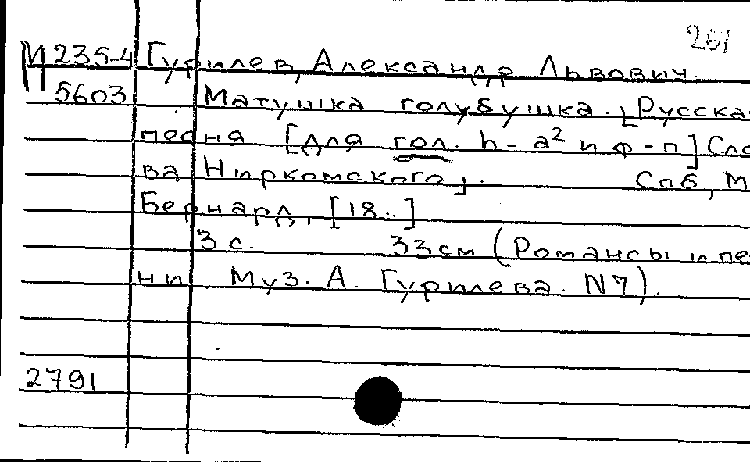 261
М 235-4 Гурилев, Александр Львович.
П 5603 Матушка голубушка. [Русска
песня [для гол. h - a² и ф-п] Сло
ва Ниркомского]. Спб, М
Бернард, [18..]
3 с. 33 см (Романсы и пе
ни Муз. А. Гурилева. N 7).
2791